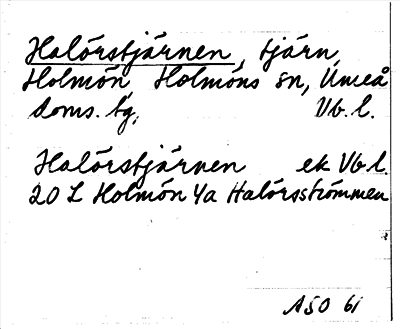 Halörstjärnen, tjärn,
Holmön, Holmöns sn, Umeå
doms. tg, Vb. l.
Halörstjärnen ek Vb l.
20 L Holmön 4a Halörsströmmen
ASO 61